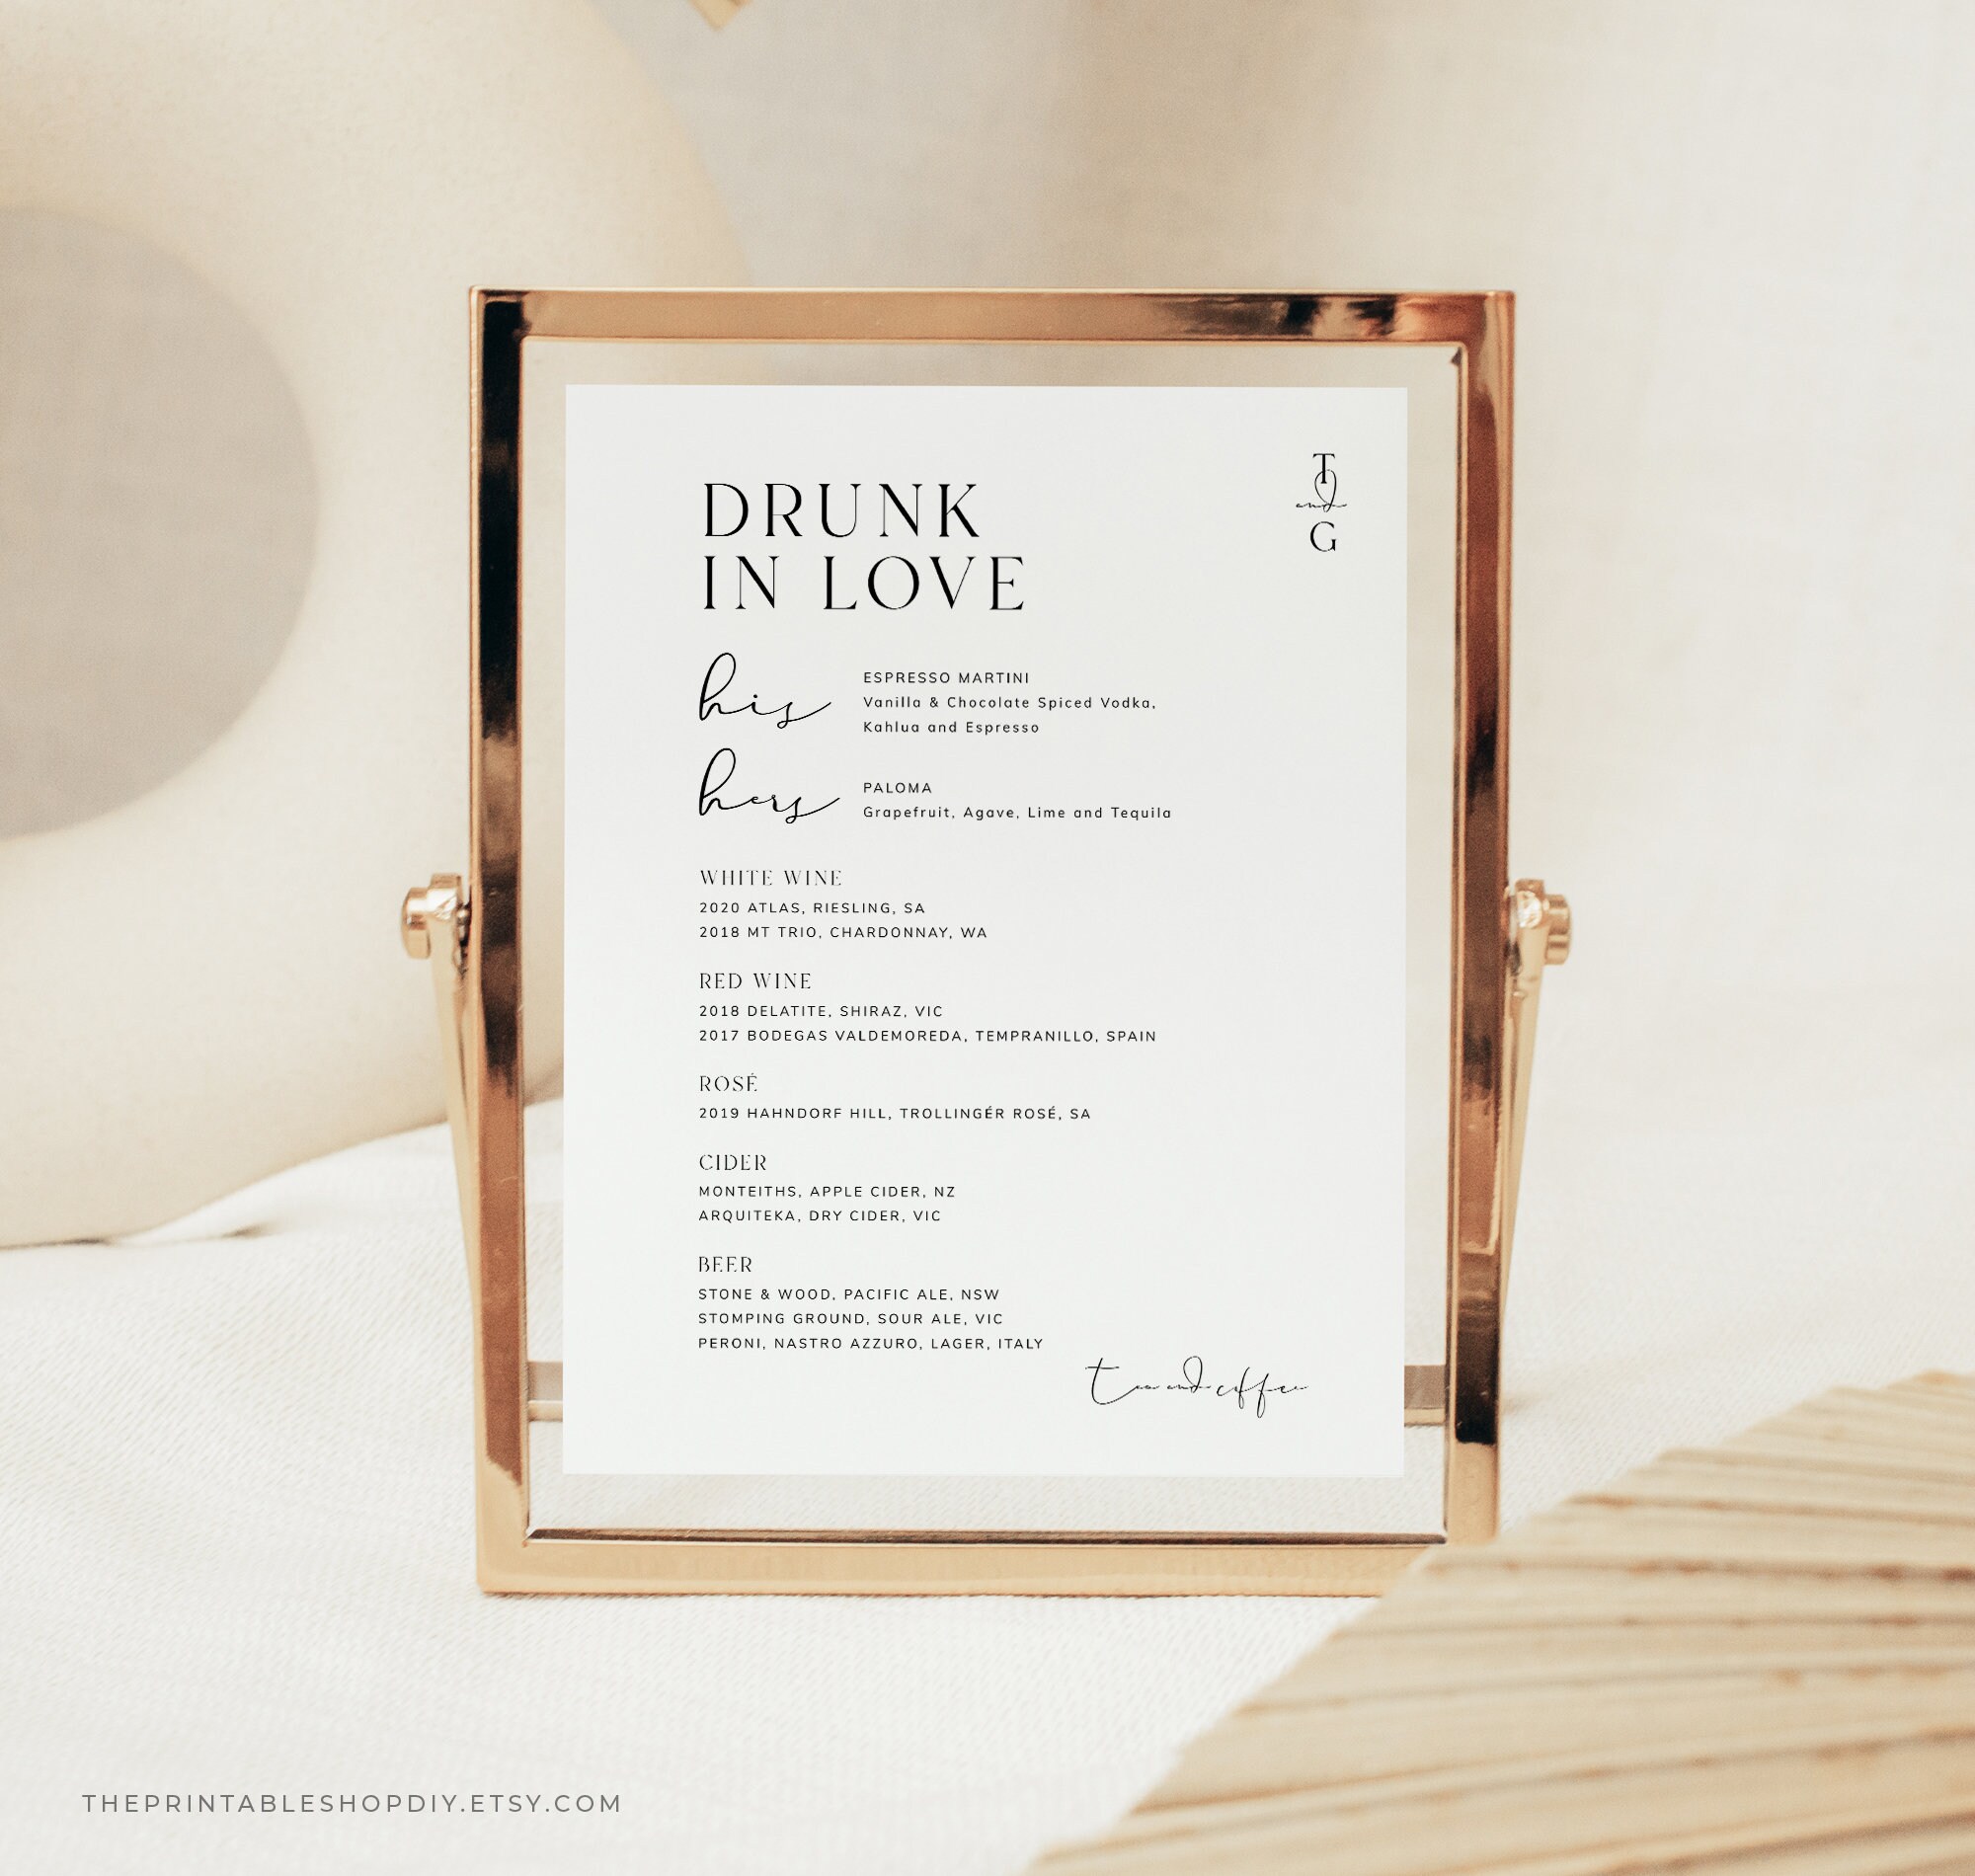 T
and
G
DRUNK
IN LOVE
his
ESPRESSO MARTINI
Vanilla & Chocolate Spiced Vodka,
Kahlua and Espresso
hers
PALOMA
Grapefruit, Agave, Lime and Tequila
WHITE WINE
2020 ATLAS, RIESLING, SA
2018 MT TRIO, CHARDONNAY, WA
RED WINE
2018 DELATITE, SHIRAZ, VIC
2017 BODEGAS VALDEMOREDA, TEMPRANILLO, SPAIN
ROSÉ
2019 HAHNDORF HILL, TROLLINGÉR ROSÉ, SA
CIDER
MONTEITHS, APPLE CIDER, NZ
ARQUITEKA, DRY CIDER, VIC
BEER
STONE & WOOD, PACIFIC ALE, NSW
STOMPING GROUND, SOUR ALE, VIC
PERONI, NASTRO AZZURO, LAGER, ITALY
tea and coffee
THEPRINTABLESHOPDIY.ETSY.COM